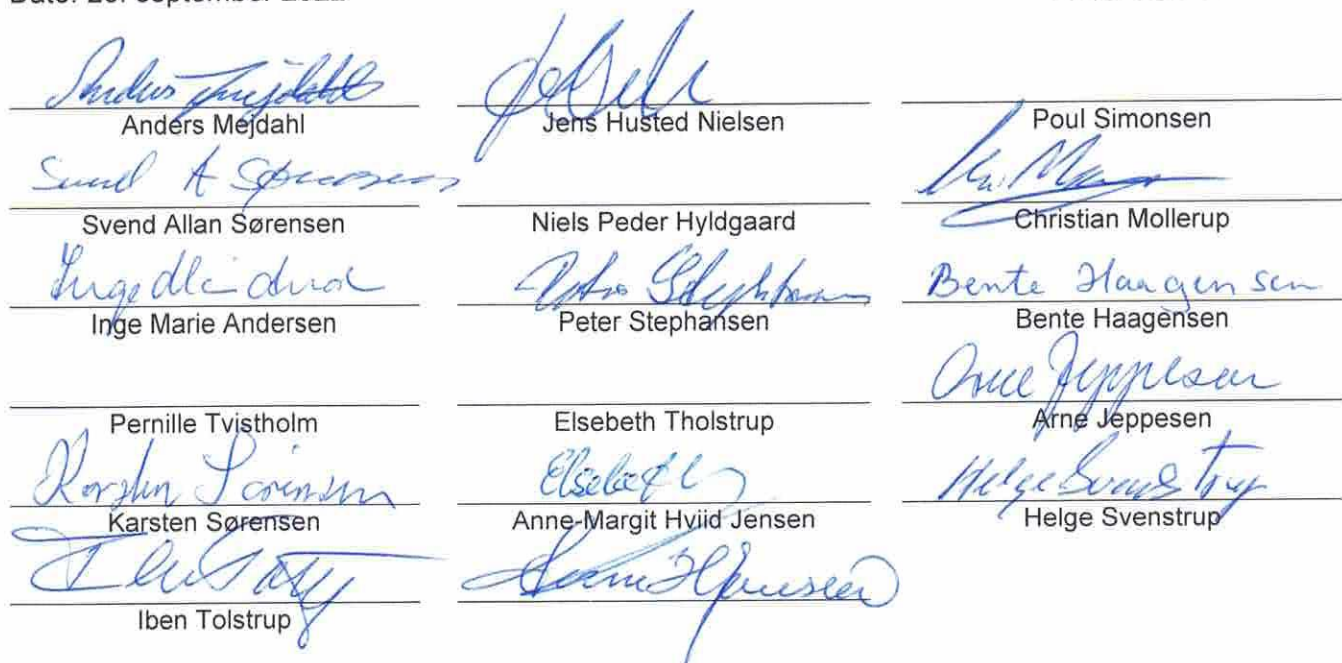 Anders Mejdahl
Anders Mejdahl Jens Husted Nielsen Poul Simonsen
Svend A Sørensen
Svend Allan Sørensen Niels Peder Hyldgaard Christian Mollerup
Bente Haagensen
Inge Marie Andersen Peter Stephansen Bente Haagensen
Arne Jeppesen
Pernille Tvistholm Elsebeth Tholstrup Arne Jeppesen
Karsten Sørensen Helge Svenstrup
Karsten Sørensen Anne-Margit Hviid Jensen Helge Svenstrup
Iben Tolstrup